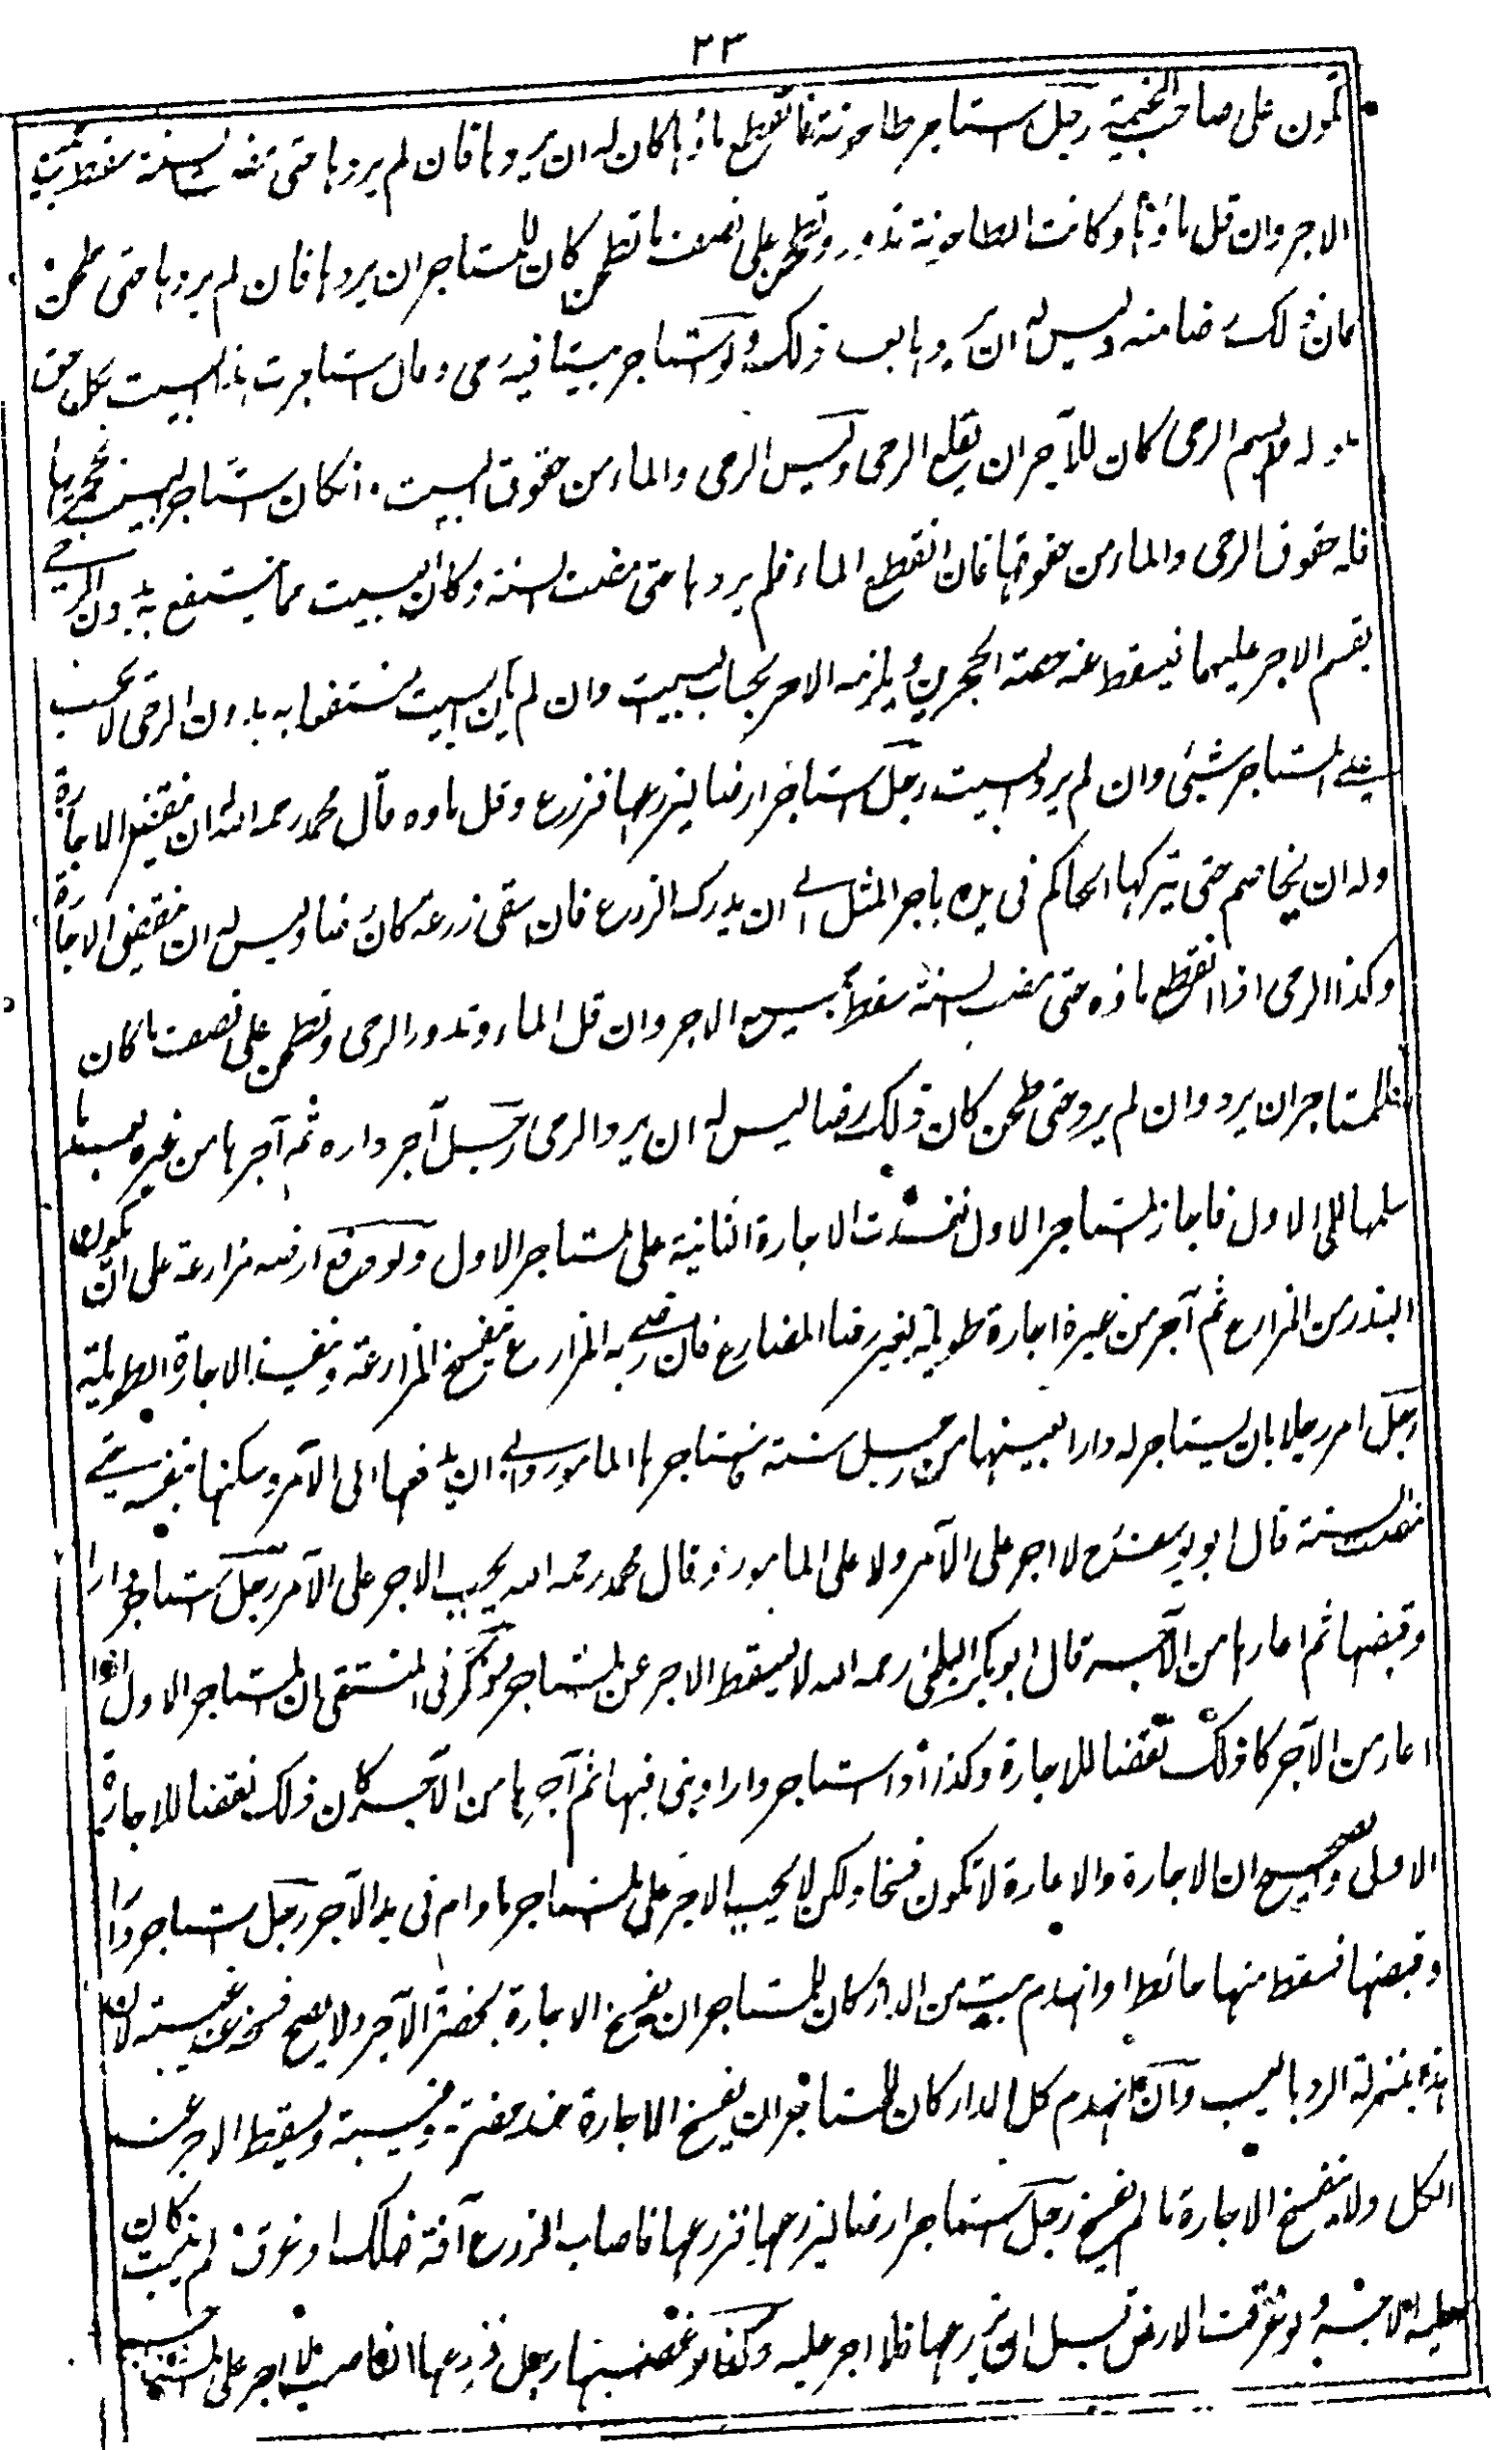 ٢٣
تكون على صاحب الخيمة رجل استاجر طاحونة فانقطع ماؤها كان له ان يردها فان لم يردها حتى مضت السنة سقط عنه
الاجر وان قل ماؤها وكانت الطاحونة تدور وتطحن على نصف ما تطحن كان للمستاجر ان يردها فان لم يردها حتى طحن
كان ذلك رضا منه وليس له ان يردها بعد ذلك ولو استاجر بيتا فيه رحى وقال استاجرت هذا البيت بكل حق
هو له ولم يسم الرحى كان للآجر ان يقلع الرحى وليس الرحى والماء من حقوق البيت وان كان استاجر البيت بحجريها
فله حقوق الرحى والماء من حقوقها فان انقطع الماء فلم يردها حتى مضت السنة وكان البيت مما ينتفع به بدون الرحى
يقسم الاجر عليهما فيسقط عنه حصة الحجرين ويلزمه الاجر بحساب البيت وان لم يكن البيت منتفعا به بدون الرحى لا يجب
على المستاجر شيئ وان لم يرد البيت رجل استاجر ارضا ليزرعها فزرع وقل ماوه قال محمد رحمه الله له ان ينقض الاجارة
وله ان يخاصم حتى يتركها الحاكم فى يده باجر المثل الى ان يدرك الزرع فان سقى زرعه كان رضا وليس له ان ينقض الاجارة
وكذا الرحى اذا انقطع ماؤه حتى مضت السنة سقط جميع الاجر وان قل الماء وتدور الرحى وتطحن على نصف ما كان
فللمستاجر ان يرد وان لم يرد حتى طحن كان ذلك رضا ليس له ان يرد الرحى رجل آجر داره ثم آجرها من غيره بعد ما
سلمها الى الاول فاجاز المستاجر الاول نفذت الاجارة الثانية على المستاجر الاول ولو دفع ارضه مزارعة على ان يكون
البذر من المزارع ثم آجر من غيره اجارة طويلة بغير رضا المضارع فان رضى به المزارع ينفسخ المزارعة وينفذ الاجارة الطويلة
رجل امر رجلا بان يستاجر له دارا بعينها من رجل سنة فاستاجرها المامور وابى ان يدفعها الى الآمر وسكنها بنفسه حتى
مضت السنة قال ابو يوسف رح لا اجر على الآمر ولا على المامور وقال محمد رحمه الله يجب الاجر على الآمر رجل استاجر دارا
وقبضها ثم اعارها من الآجر قال ابو بكر البلخى رحمه الله لا يسقط الاجر عن المستاجر وذكر فى المنتقى ان المستاجر الاول اذا
اعار من الآجر كان ذلك نقضا للاجارة وكذا اذا استاجر دارا وبنى فيها ثم آجرها من الآجر كان ذلك نقضا للاجارة
الاولى والصحيح ان الاجارة والاعارة لا تكون فسخا ولكن لا يجب الاجر على المستاجر ما دام فى يد الآجر رجل استاجر دارا
وقبضها فسقط منها حائط او انهدم بيت من الدار كان للمستاجر ان يفسخ الاجارة بحضرة الآجر ولا يصح فسخه عند غيبته لان
هذه بمنزلة الرد بالعيب وان انهدم كل الدار كان للمستاجر ان يفسخ الاجارة عند حضرته وغيبته ويسقط الاجر عند
الكل ولا ينفسخ الاجارة ما لم يفسخ رجل استاجر ارضا ليزرعها فزرعها فاصاب الزرع آفة فهلك او غرق ولم ينبت كان
عليه الاجر ولو غرقت الارض قبل ان يزرعها فلا اجر عليه وكذا لو غصبها رجل فزرعها الغاصب لا اجر على المستاجر